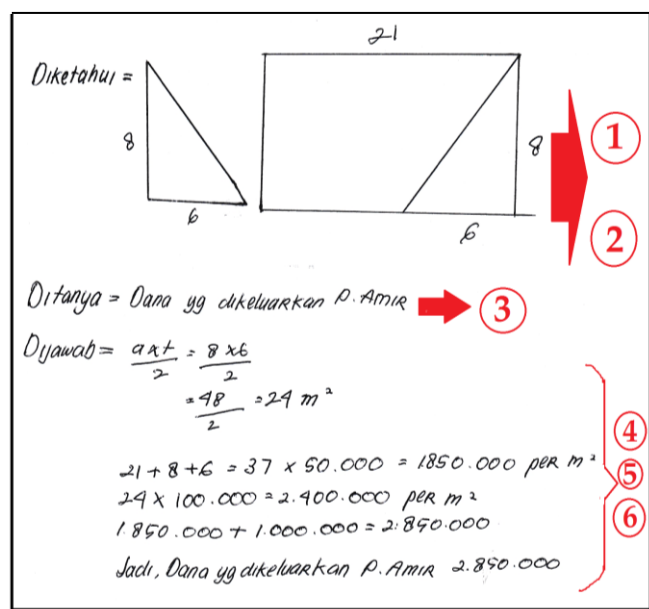 21
Diketahui =
8
6
8
6
1
2
Ditanya = Dana yg dikeluarkan P. Amir
3
Dijawab = axt/2 = 8x6/2
= 48/2 = 24 m²
21 + 8 + 6 = 37 x 50.000 = 1850.000 per m²
24 x 100.000 = 2.400.000 per m²
1.850.000 + 1.000.000 = 2.850.000
Jadi, Dana yg dikeluarkan P. Amir 2.850.000
4
5
6